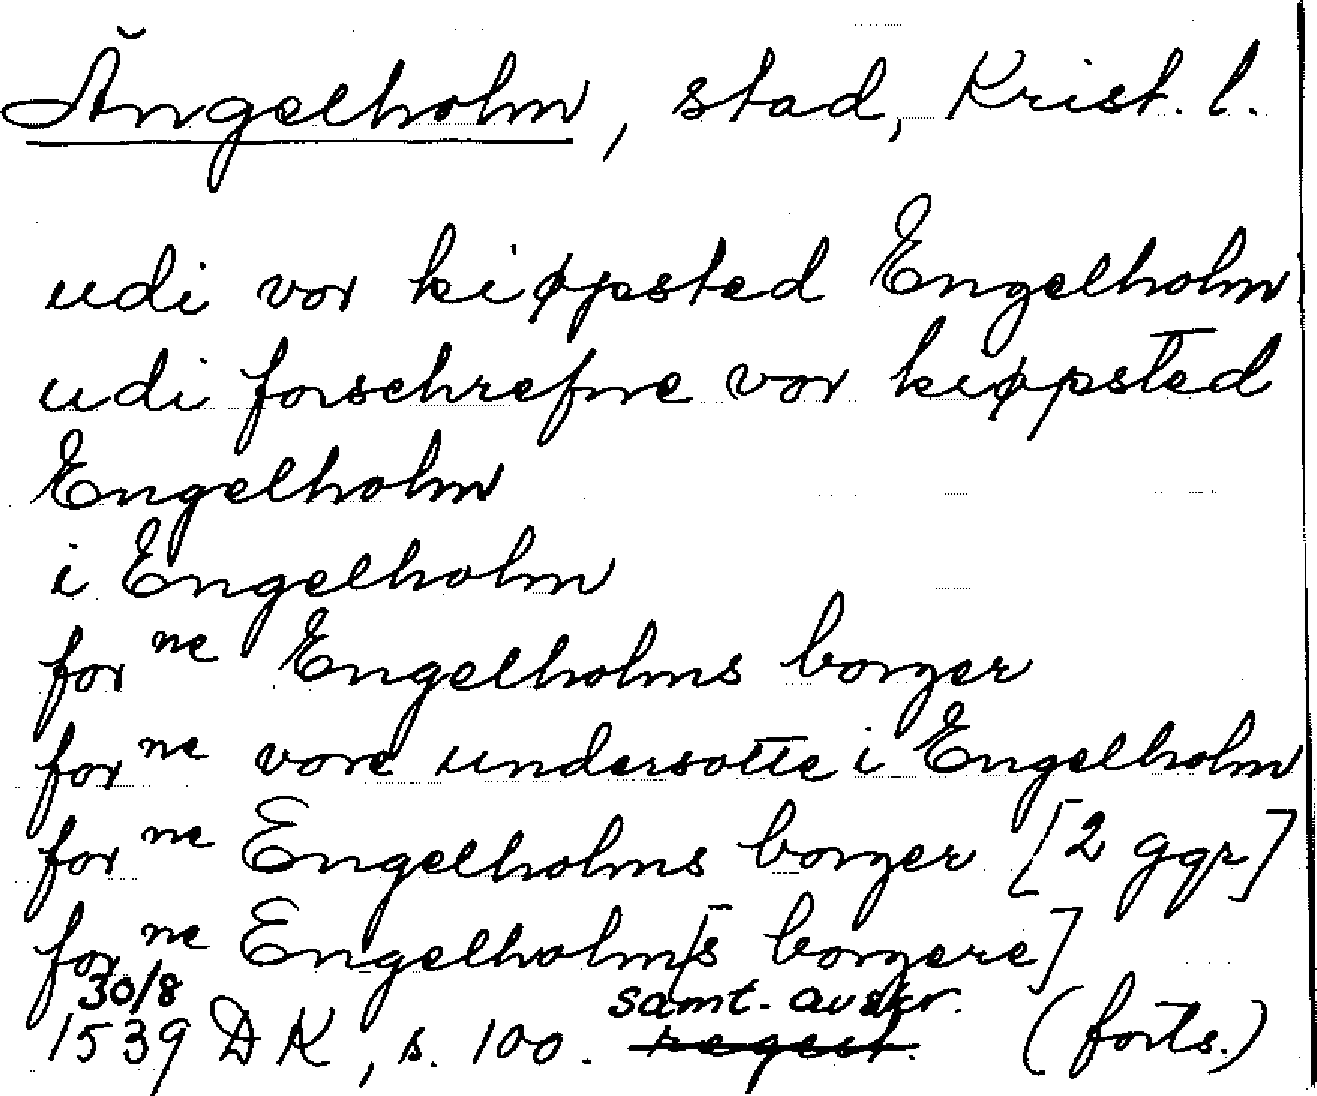 Ängelholm, stad, Krist. l.
udi vor kiøpsted Engelholm
udi forschrefne vor kiøpsted
Engelholm
i Engelholm
for ne Engelholms borger
for ne vore undersotte i Engelholm
for ne Engelholms borger [2 ggr]
for ne Engelholm[s borgere]
30/8 samt. avskr.
1539 DK, s. 100. regest. (forts.)